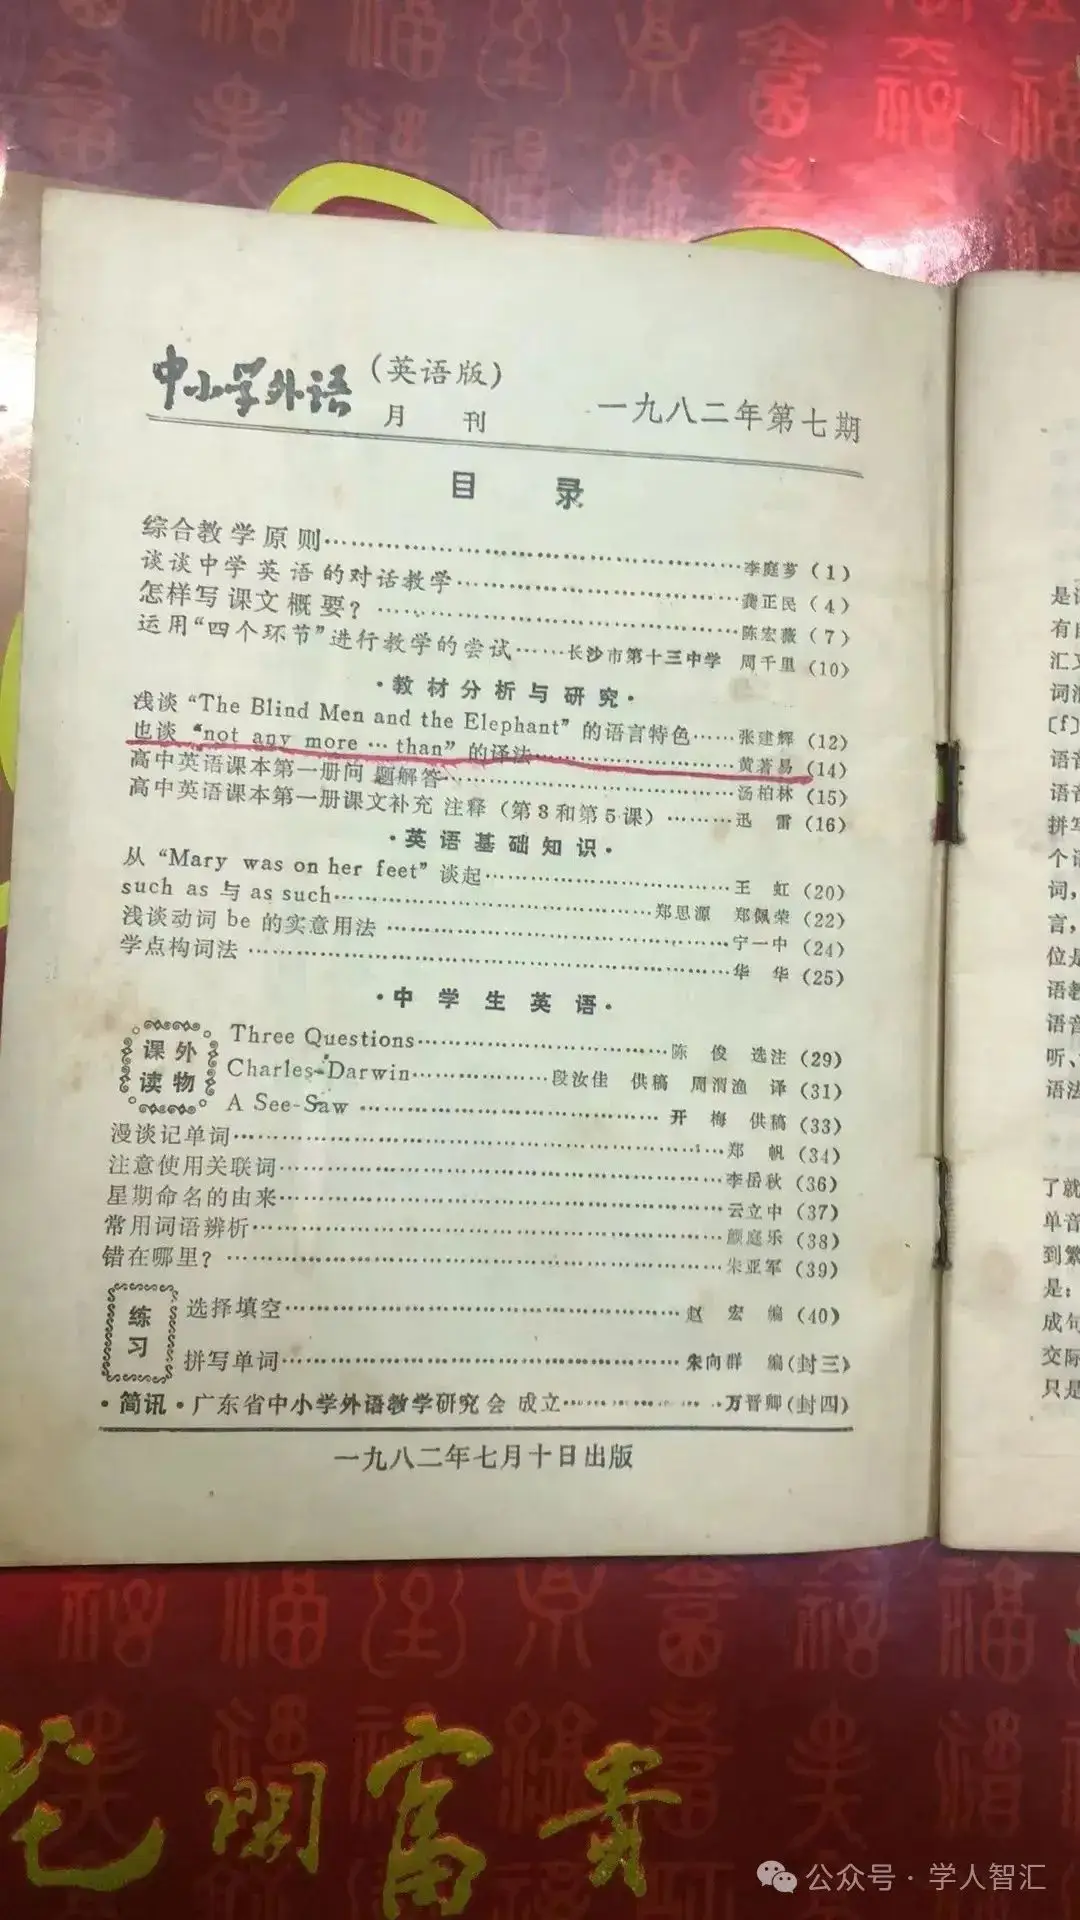 中小学外语（英语版）
月刊
一九八二年第七期
目录
综合教学原则……李庭芗（1）
谈谈中学英语的对话教学……龚正民（4）
怎样写课文概要？……陈宏薇（7）
运用“四个环节”进行教学的尝试……长沙市第十三中学 周千里（10）
·教材分析与研究·
浅谈“The Blind Men and the Elephant”的语言特色……张建辉（12）
也谈“not any more … than”的译法……黄著易（14）
高中英语课本第一册问题解答……汤柏林（15）
高中英语课本第一册课文补充注释（第3和第5课）……迅雷（16）
·英语基础知识·
从“Mary was on her feet”谈起……王虹（20）
such as 与 as such……郑思源 郑佩荣（22）
浅谈动词 be 的实意用法……宁一中（24）
学点构词法……华华（25）
·中学生英语·
课外读物
Three Questions……陈俊 选注（29）
Charles Darwin……段汝佳 供稿 周渭渔 译（31）
A See-Saw……开梅 供稿（33）
漫谈记单词……郑帆（34）
注意使用关联词……李岳秋（36）
星期命名的由来……云立中（37）
常用词语辨析……颜庭乐（38）
错在哪里？……朱亚军（39）
练习
选择填空……赵宏 编（40）
拼写单词……朱向群 编（封三）
·简讯·广东省中小学外语教学研究会成立……万晋卿（封四）
一九八二年七月十日出版
是
有
汇
词
[f]
语音
语音
拼写
个
词，
言，
位是
语教
语音
听、
语法
了就
单音
到繁
是：
成句
交际
只是
花开富贵
公众号·学人智汇